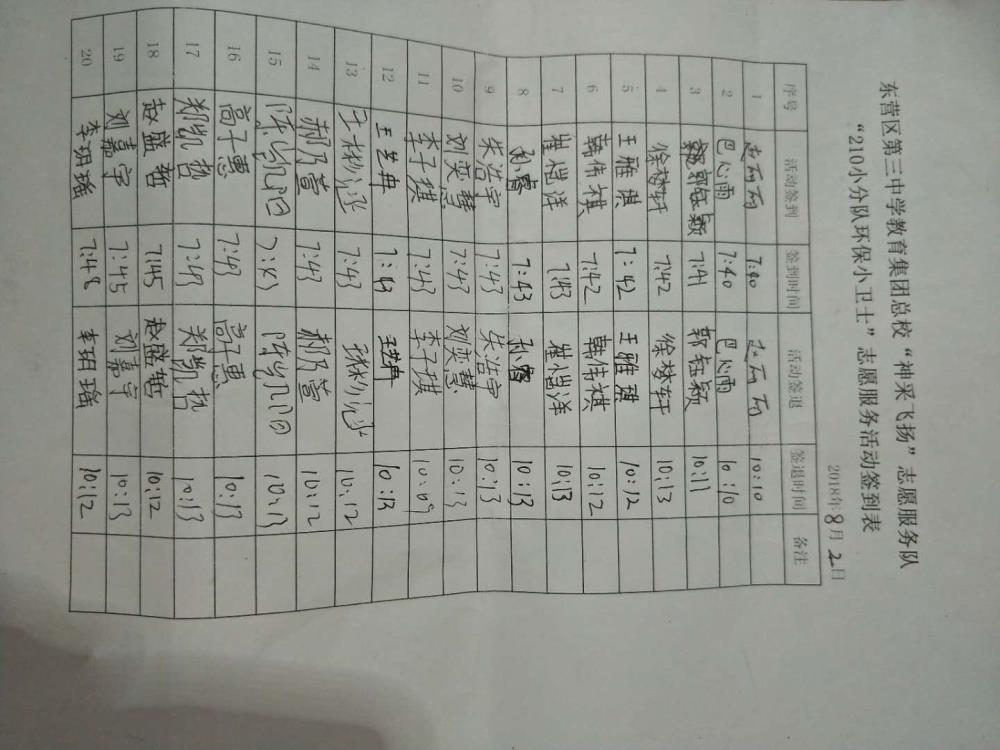 东营区第三中学教育集团总校“神采飞扬”志愿服务队
“210小分队环保小卫士”志愿服务活动签到表
2018年8月2日
序号 活动签到 签到时间 活动签退 签退时间 备注
1 赵雨雨 7:40 赵雨雨 10:10
2 巴心雨 7:40 巴心雨 10:10
3 郭钰颖 7:41 郭钰颖 10:11
4 徐梦轩 7:42 徐梦轩 10:13
5 王雅琪 7:42 王雅琪 10:12
6 韩伟祺 7:42 韩伟祺 10:12
7 崔恺洋 7:43 崔恺洋 10:13
8 孙睿 7:43 孙睿 10:13
9 朱浩宇 7:43 朱浩宇 10:13
10 刘奕慧 7:43 刘奕慧 10:13
11 李子琪 7:43 李子琪 10:09
12 王艺冉 7:43 王艺冉 10:13
13 7:43 10:12
14 郝乃萱 7:43 郝乃萱 10:12
15 陈凯阳 7:43 陈凯阳 10:13
16 高子惠 7:43 高子惠 10:13
17 郑凯哲 7:43 郑凯哲 10:13
18 赵盛哲 7:45 赵盛哲 10:12
19 刘嘉宇 7:45 刘嘉宇 10:13
20 李玥瑶 7:48 李玥瑶 10:12